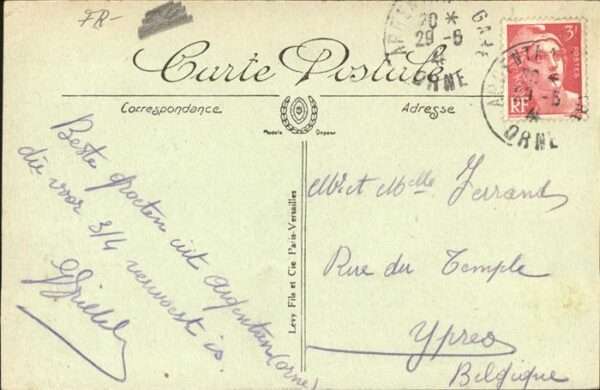 FR-
Carte Postale
Correspondance
Adresse
Modèle Déposé
Beste groeten uit Argentan (orne)
die voor 3/4 verwoest is.
Lévy Fils et Cie Paris-Versailles
ARGENTAN GARE
20 *
29-5
ORNE
3F
RF
ARGENTAN GARE
20 *
29-5
ORNE
Mr et Melle Ferrand
Rue du Temple
Ypres
Belgique